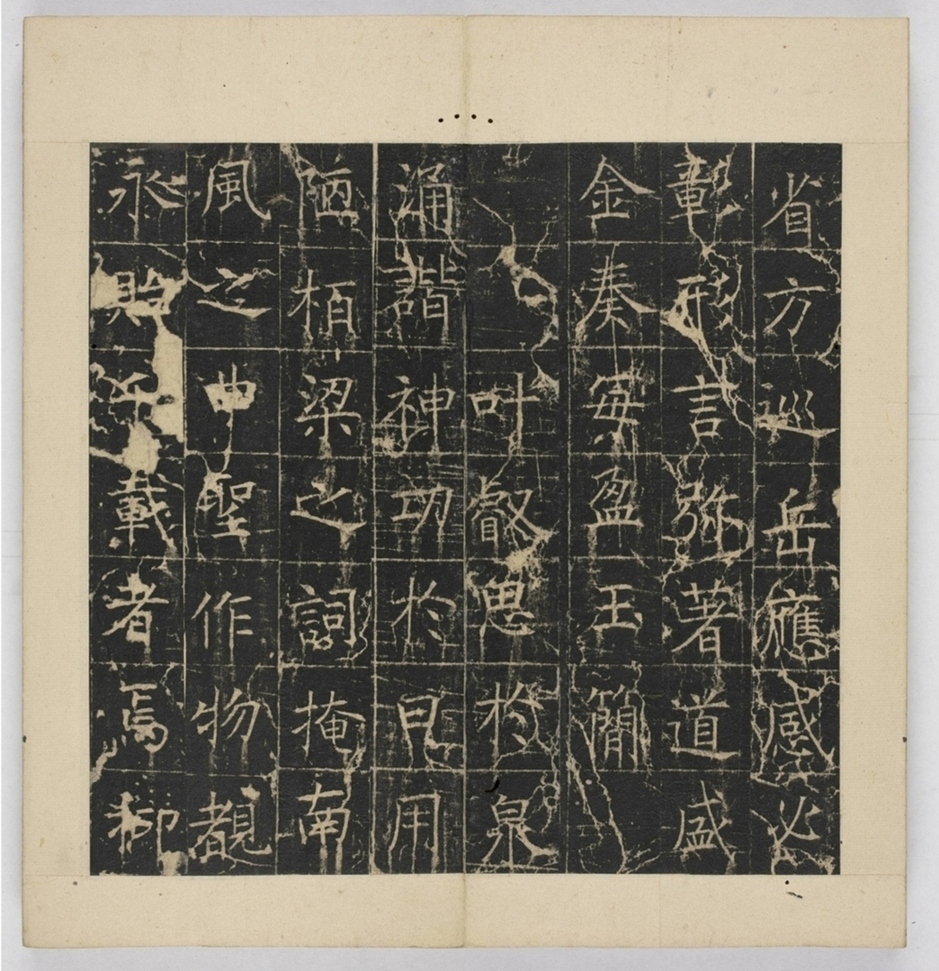 省方巡岳應感必
彰形言弥著道盛
金奏每盈玉簡
叶叡思於泉
涌諧神功於日用
陋栢梁之詞掩南
風之曲聖作物覩
永貽載者焉柳